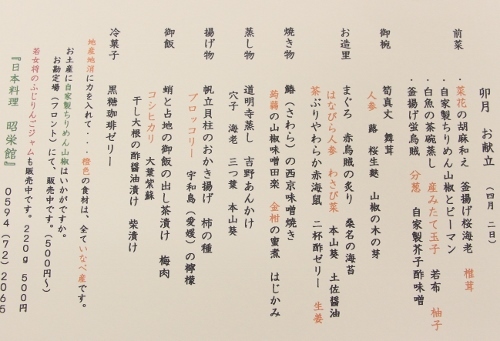 卯月 お献立 （四月 二日）
前菜
・菜花の胡麻和え 釜揚げ桜海老 椎茸
・自家製ちりめん山椒とピーマン
・白魚の茶碗蒸し 産みたて玉子 若布 柚子
・釜揚げ蛍烏賊 分葱 自家製芥子酢味噌
御椀
筍真丈 舞茸
人参 蕗 桜生麩 山椒の木の芽
お造里
まぐろ 赤烏賊の炙り 桑名の海苔
はなびら人参 わさび菜 本山葵 土佐醤油
茶ぶりやわらか赤海鼠 二杯酢ゼリー 生姜
焼き物
鰆（さわら）の西京味噌焼き
蒟蒻の山椒味噌田楽 金柑の蜜煮 はじかみ
蒸し物
道明寺蒸し 吉野あんかけ
穴子 海老 三つ葉 本山葵
揚げ物
帆立貝柱のおかき揚げ 柿の種
ブロッコリー 宇和島（愛媛）の檸檬
御飯
蛸と占地の御飯の出し茶漬け 梅肉
コシヒカリ 大葉紫蘇
干し大根の酢醤油漬け 柴漬け
冷菓子
黒糖珈琲ゼリー
地産地消に力を入れて・・・橙色の食材は、全ていなべ産です。
お土産に自家製ちりめん山椒はいかがですか。
お勘定場（フロント）にて、販売中です。（５００円～）
若女将のふじりんごジャムも販売中です。２２０ｇ ５００円
『日本料理 昭栄館』 ０５９４（７２）２０６５